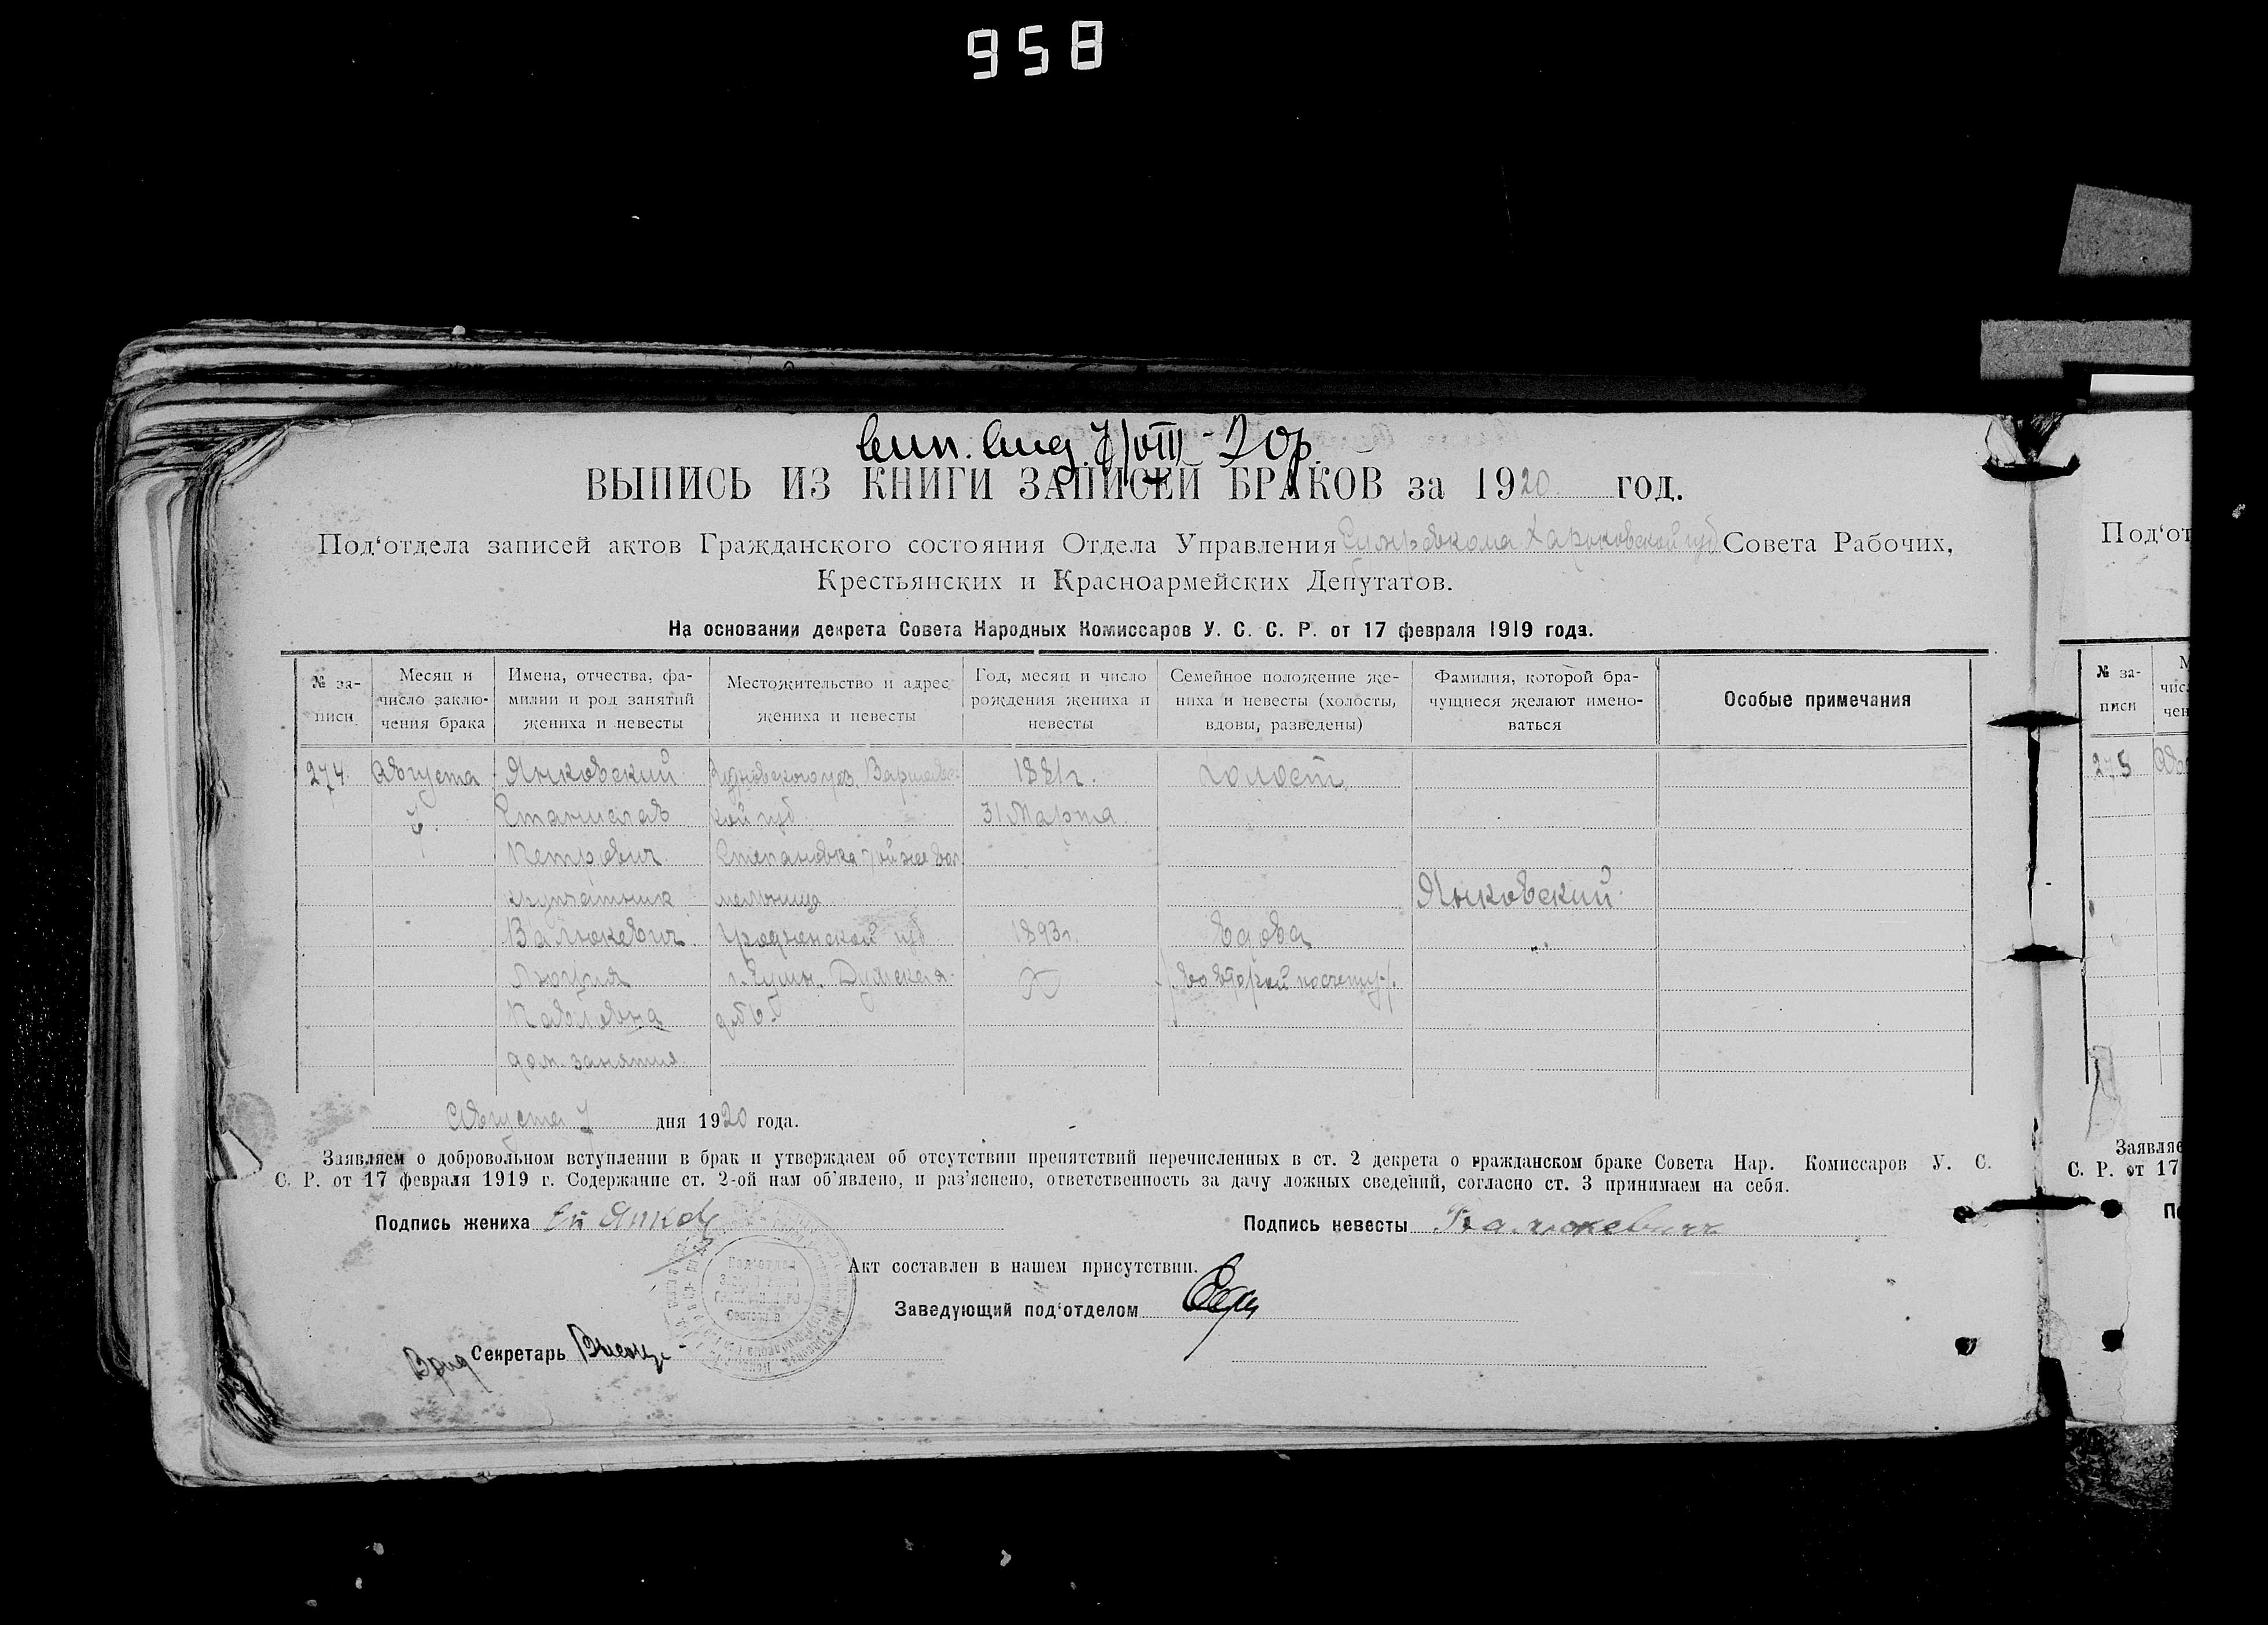 958
вып. выд. 7/VIII - 20 г.
ВЫПИСЬ ИЗ КНИГИ ЗАПИСЕЙ БРАКОВ за 1920 год.
Под‘отдела записей актов Гражданского состояния Отдела Управления Харьковской губ Совета Рабочих,
Крестьянских и Красноармейских Депутатов.
На основании декрета Совета Народных Комиссаров У. С. С. Р. от 17 февраля 1919 года.
№ за-
писи
Месяц и
число заклю-
чения брака
Имена, отчества, фа-
милии и род занятий
жениха и невесты
Местожительство и адрес
жениха и невесты
Год, месяц и число
рождения жениха и
невесты
Семейное положение же-
ниха и невесты (холосты,
вдовы, разведены)
Фамилия, которой бра-
чущиеся желают имено-
ваться
Особые примечания
274. Августа Янковский уез. Варшавс- 1881г. холост
7. Станислав кой губ. 31 Марта.
Петрович Степановка той же вол.
крупчатник мельница Янковский.
Валюкевич Гродненской губ 1893г. вдова "
Люция Сумская /во второй по счету/.
Павловна д. № 6.
дом. занятия.
Августа 7 дня 1920 года.
Заявляем о добровольном вступлении в брак и утверждаем об отсутствии препятствий перечисленных в ст. 2 декрета о гражданском браке Совета Нар. Комиссаров У. С.
С. Р. от 17 февраля 1919 г. Содержание ст. 2-ой нам об‘явлено, и раз‘яснено, ответственность за дачу ложных сведений, согласно ст. 3 принимаем на себя.
Подпись жениха Подпись невесты Валюкевич
Акт составлен в нашем присутствии.
Заведующий под‘отделом
Врид Секретарь
Под‘от
№ за-
писи
275
Заявляе
С. Р. от 17